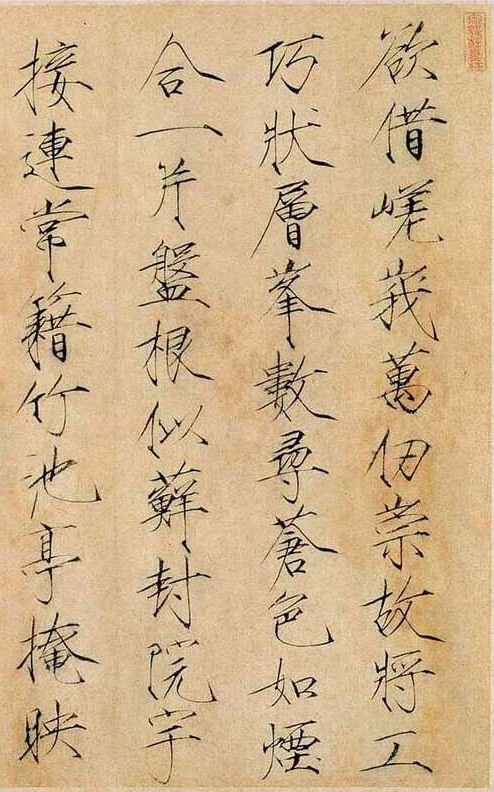 欲借嵯峨萬仞崇故將工
巧狀層峯數尋蒼色如煙
合一片盤根似蘚封院宇
接連常籍竹池亭掩映